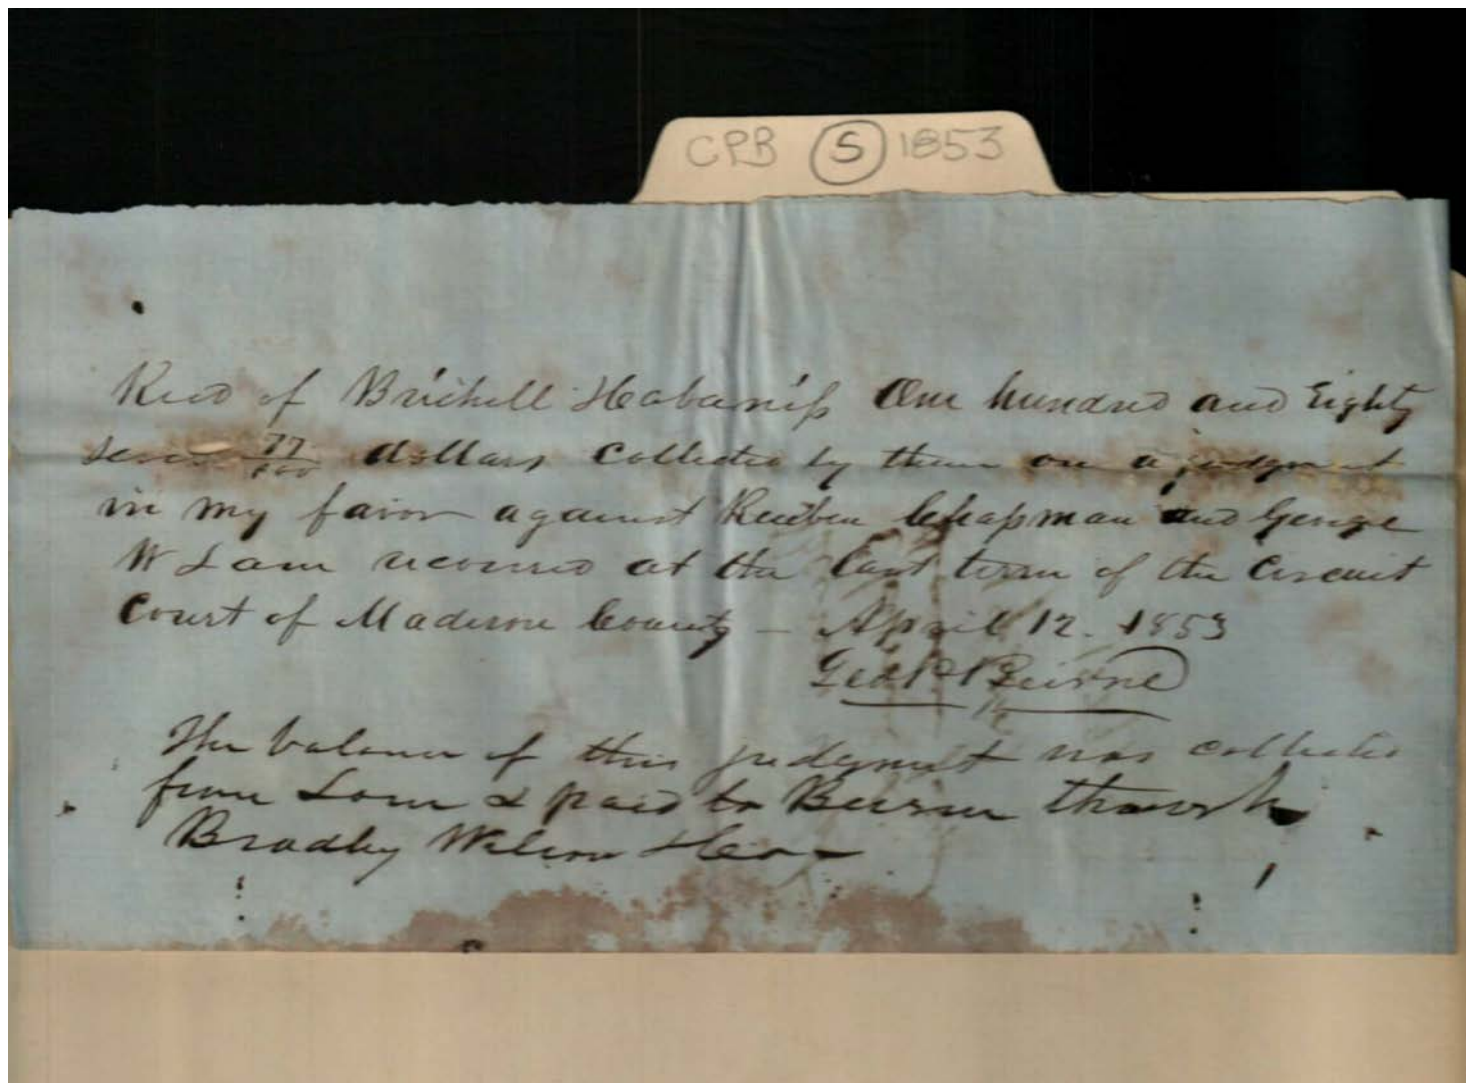 CPB S 1853
Recd of Brickell & Cabaniss One hundred and Eighty
seven 77/100 dollars collected by them on a judgment
in my favor against Reuben Chapman and George
W Lane recovered at the last term of the Circuit
Court of Madison County – April 12. 1853
Geo P Beirne
The balance of this judgment was collected
from Lane & paid to Beirne through
Bradley Wilson & Co –